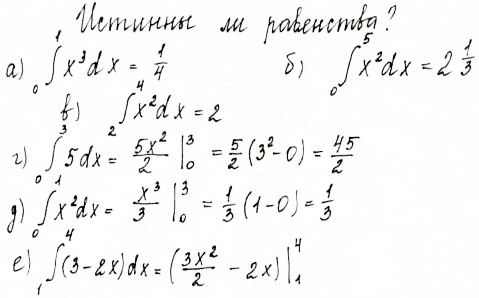 Истинны ли равенства?
а) ∫₀¹ x³dx = 1/4 б) ∫₀⁵ x²dx = 2 1/3
в) ∫₂⁴ x²dx = 2
г) ∫₀³ 5dx = 5x²/2 |₀³ = 5/2 (3²-0) = 45/2
д) ∫₀¹ x²dx = x³/3 |₀³ = 1/3 (1-0) = 1/3
е) ∫₁⁴ (3-2x)dx = (3x²/2 - 2x) |₁⁴